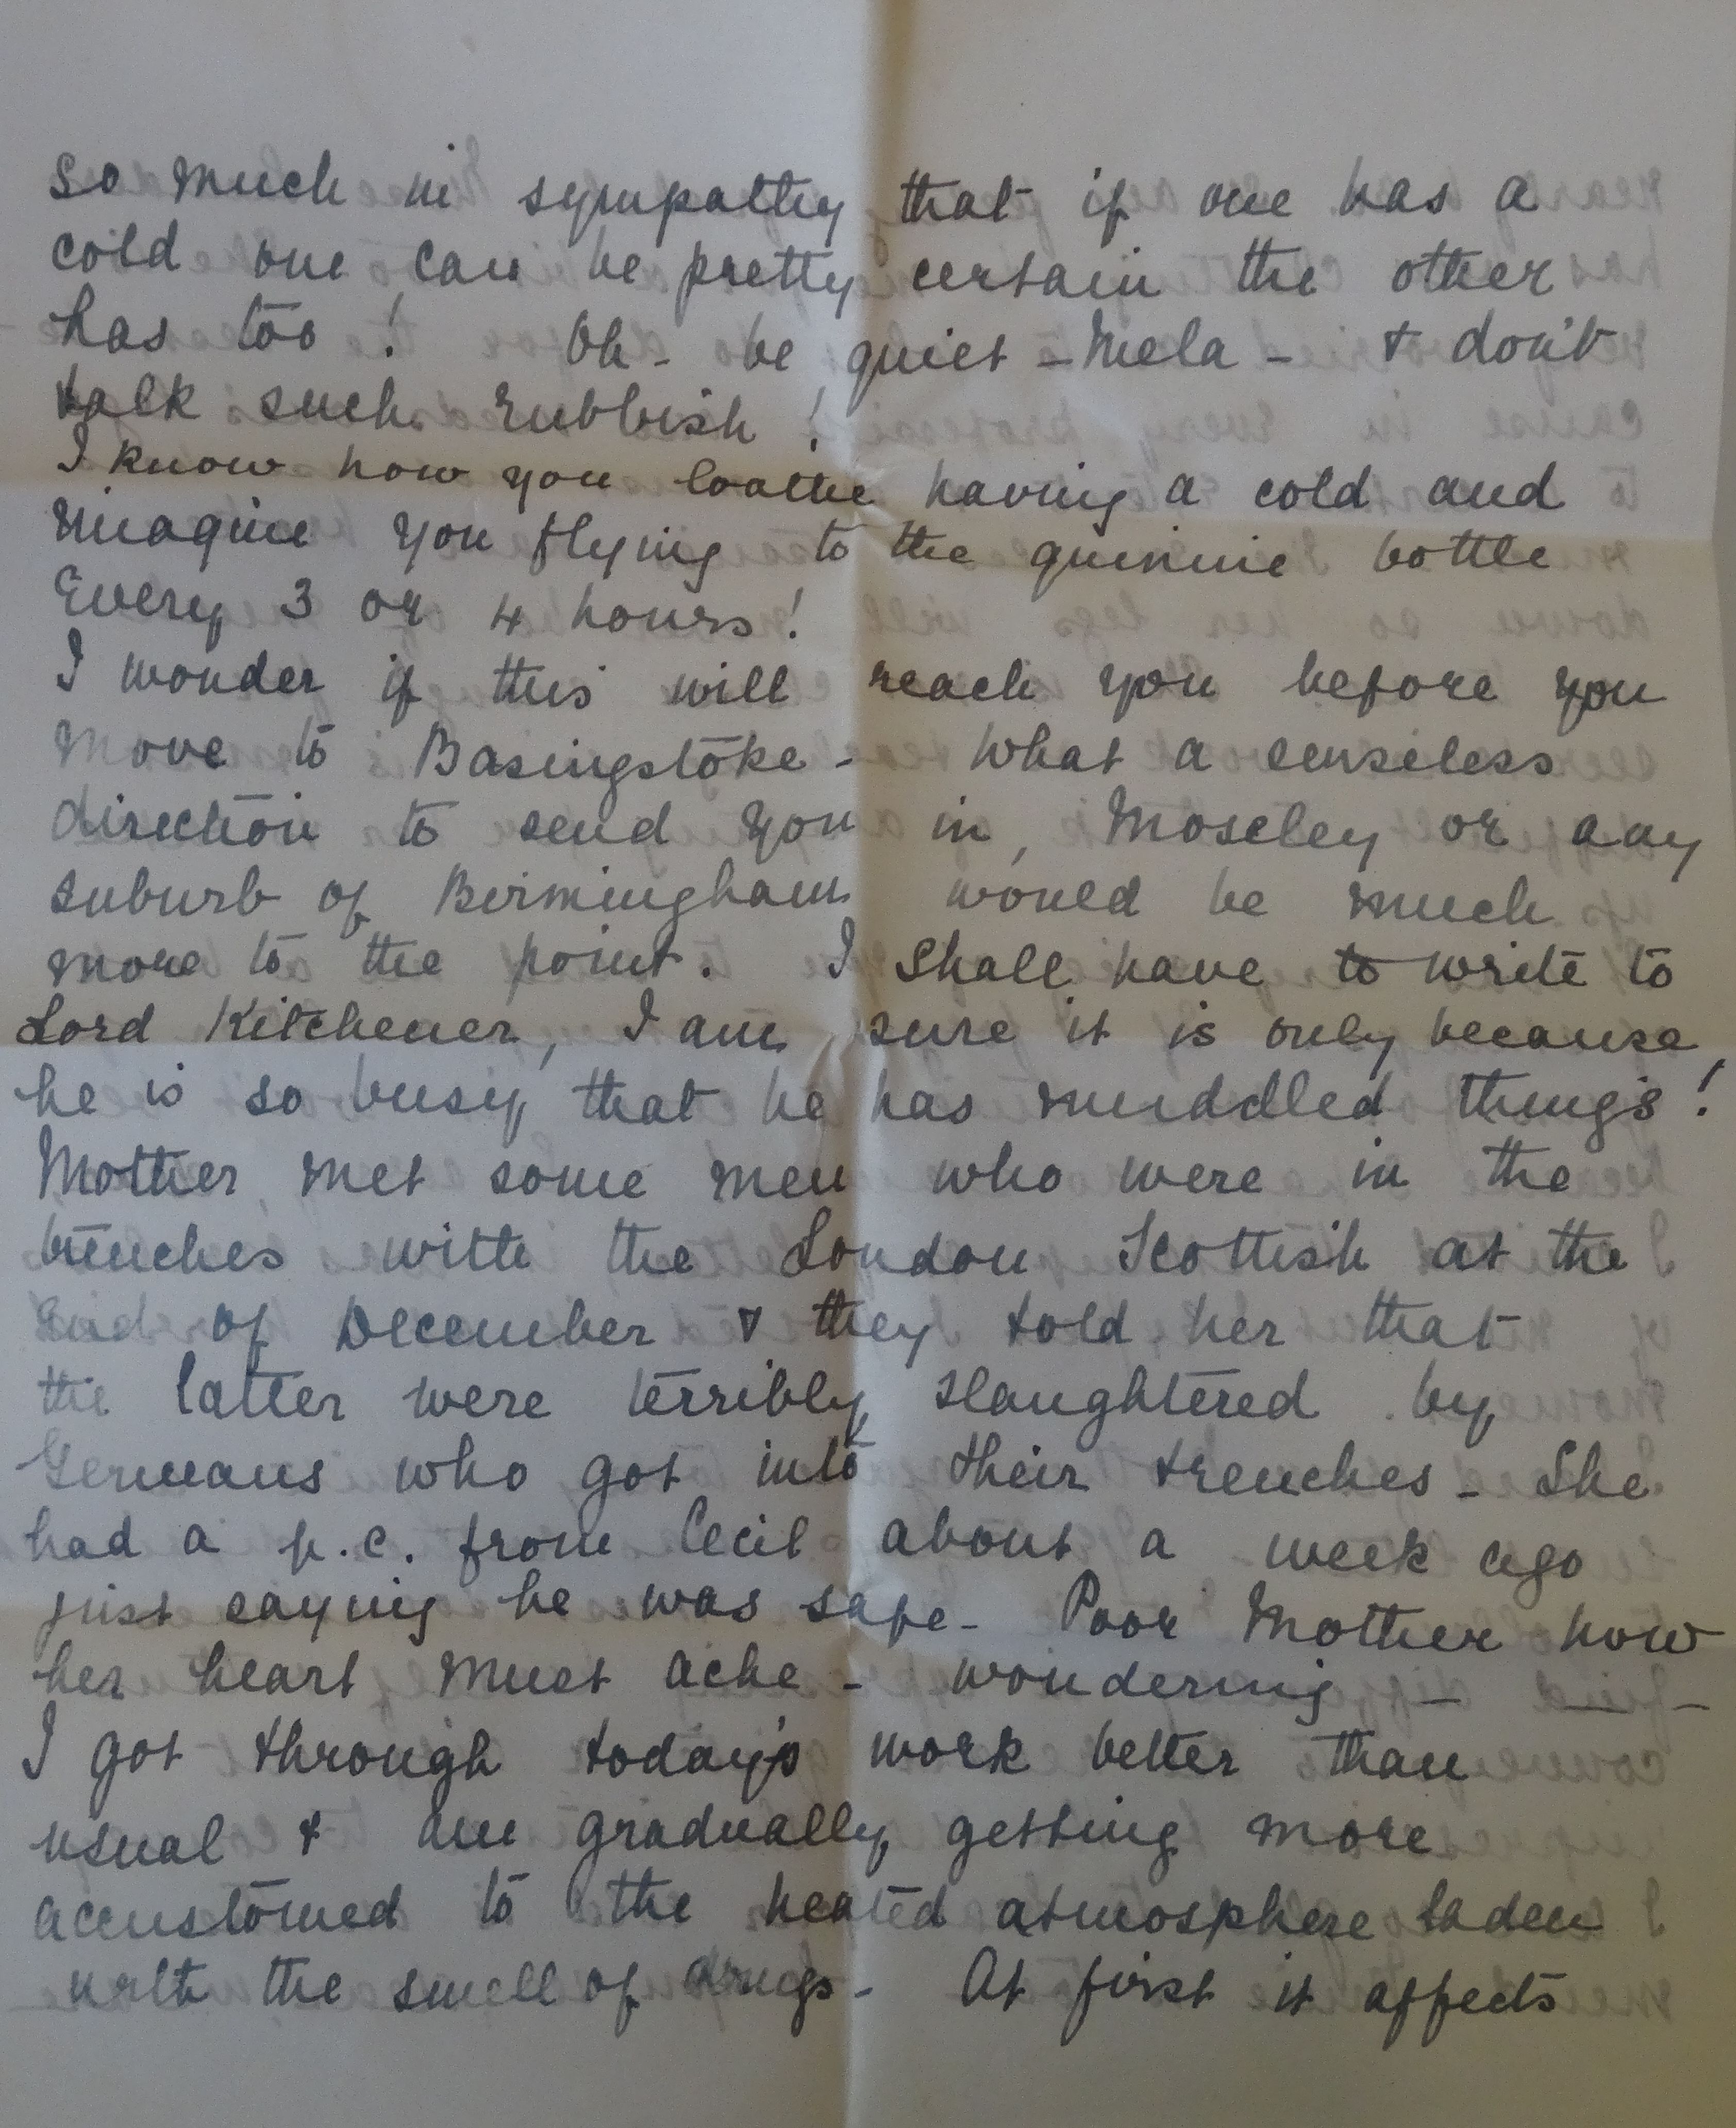 so much in sympathy that if one has a
cold one can be pretty certain the other
has too! Oh - be quiet - Mela - & don't
talk such rubbish!
I know how you loathe having a cold and
imagine you flying to the quinine bottle
Every 3 or 4 hours!
I wonder if this will reach you before you
Move to Basingstoke - What a senseless
direction to send you in, Moseley or any
suburb of Birmingham would be much
more to the point. I shall have to write to
Lord Kitchener, I am sure it is only because,
he is so busy that he has muddled things!
Mother met some men who were in the
trenches with the London Scottish at the
End of December & they told her that
the latter were terribly slaughtered by
Germans who got into their trenches - She
had a p.c. from Cecil about a week ago
just saying he was safe - Poor Mother how
her heart must ache - wondering - - -
I got through today's work better than
usual & am gradually getting more
accustomed to the heated atmosphere laden
with the smell of drugs - At first it affects